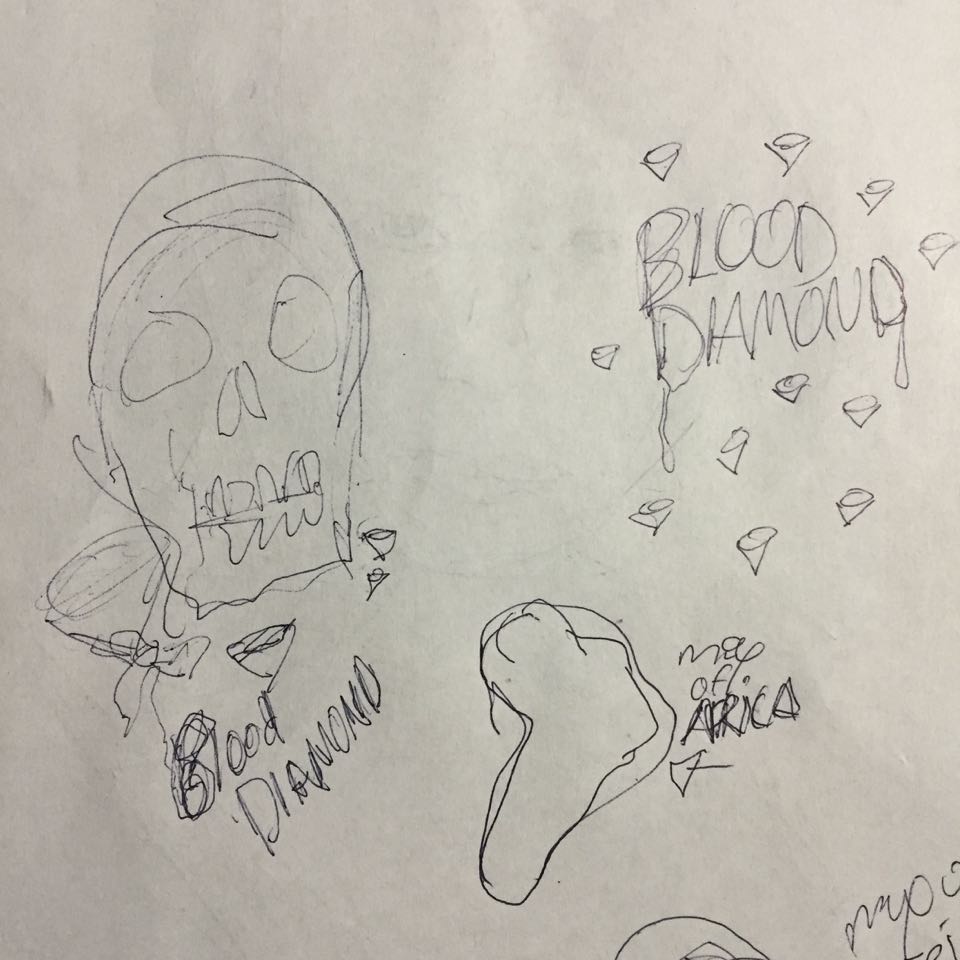 BLOOD
DIAMOND
Blood
DIAMOND
map
of
AFRICA